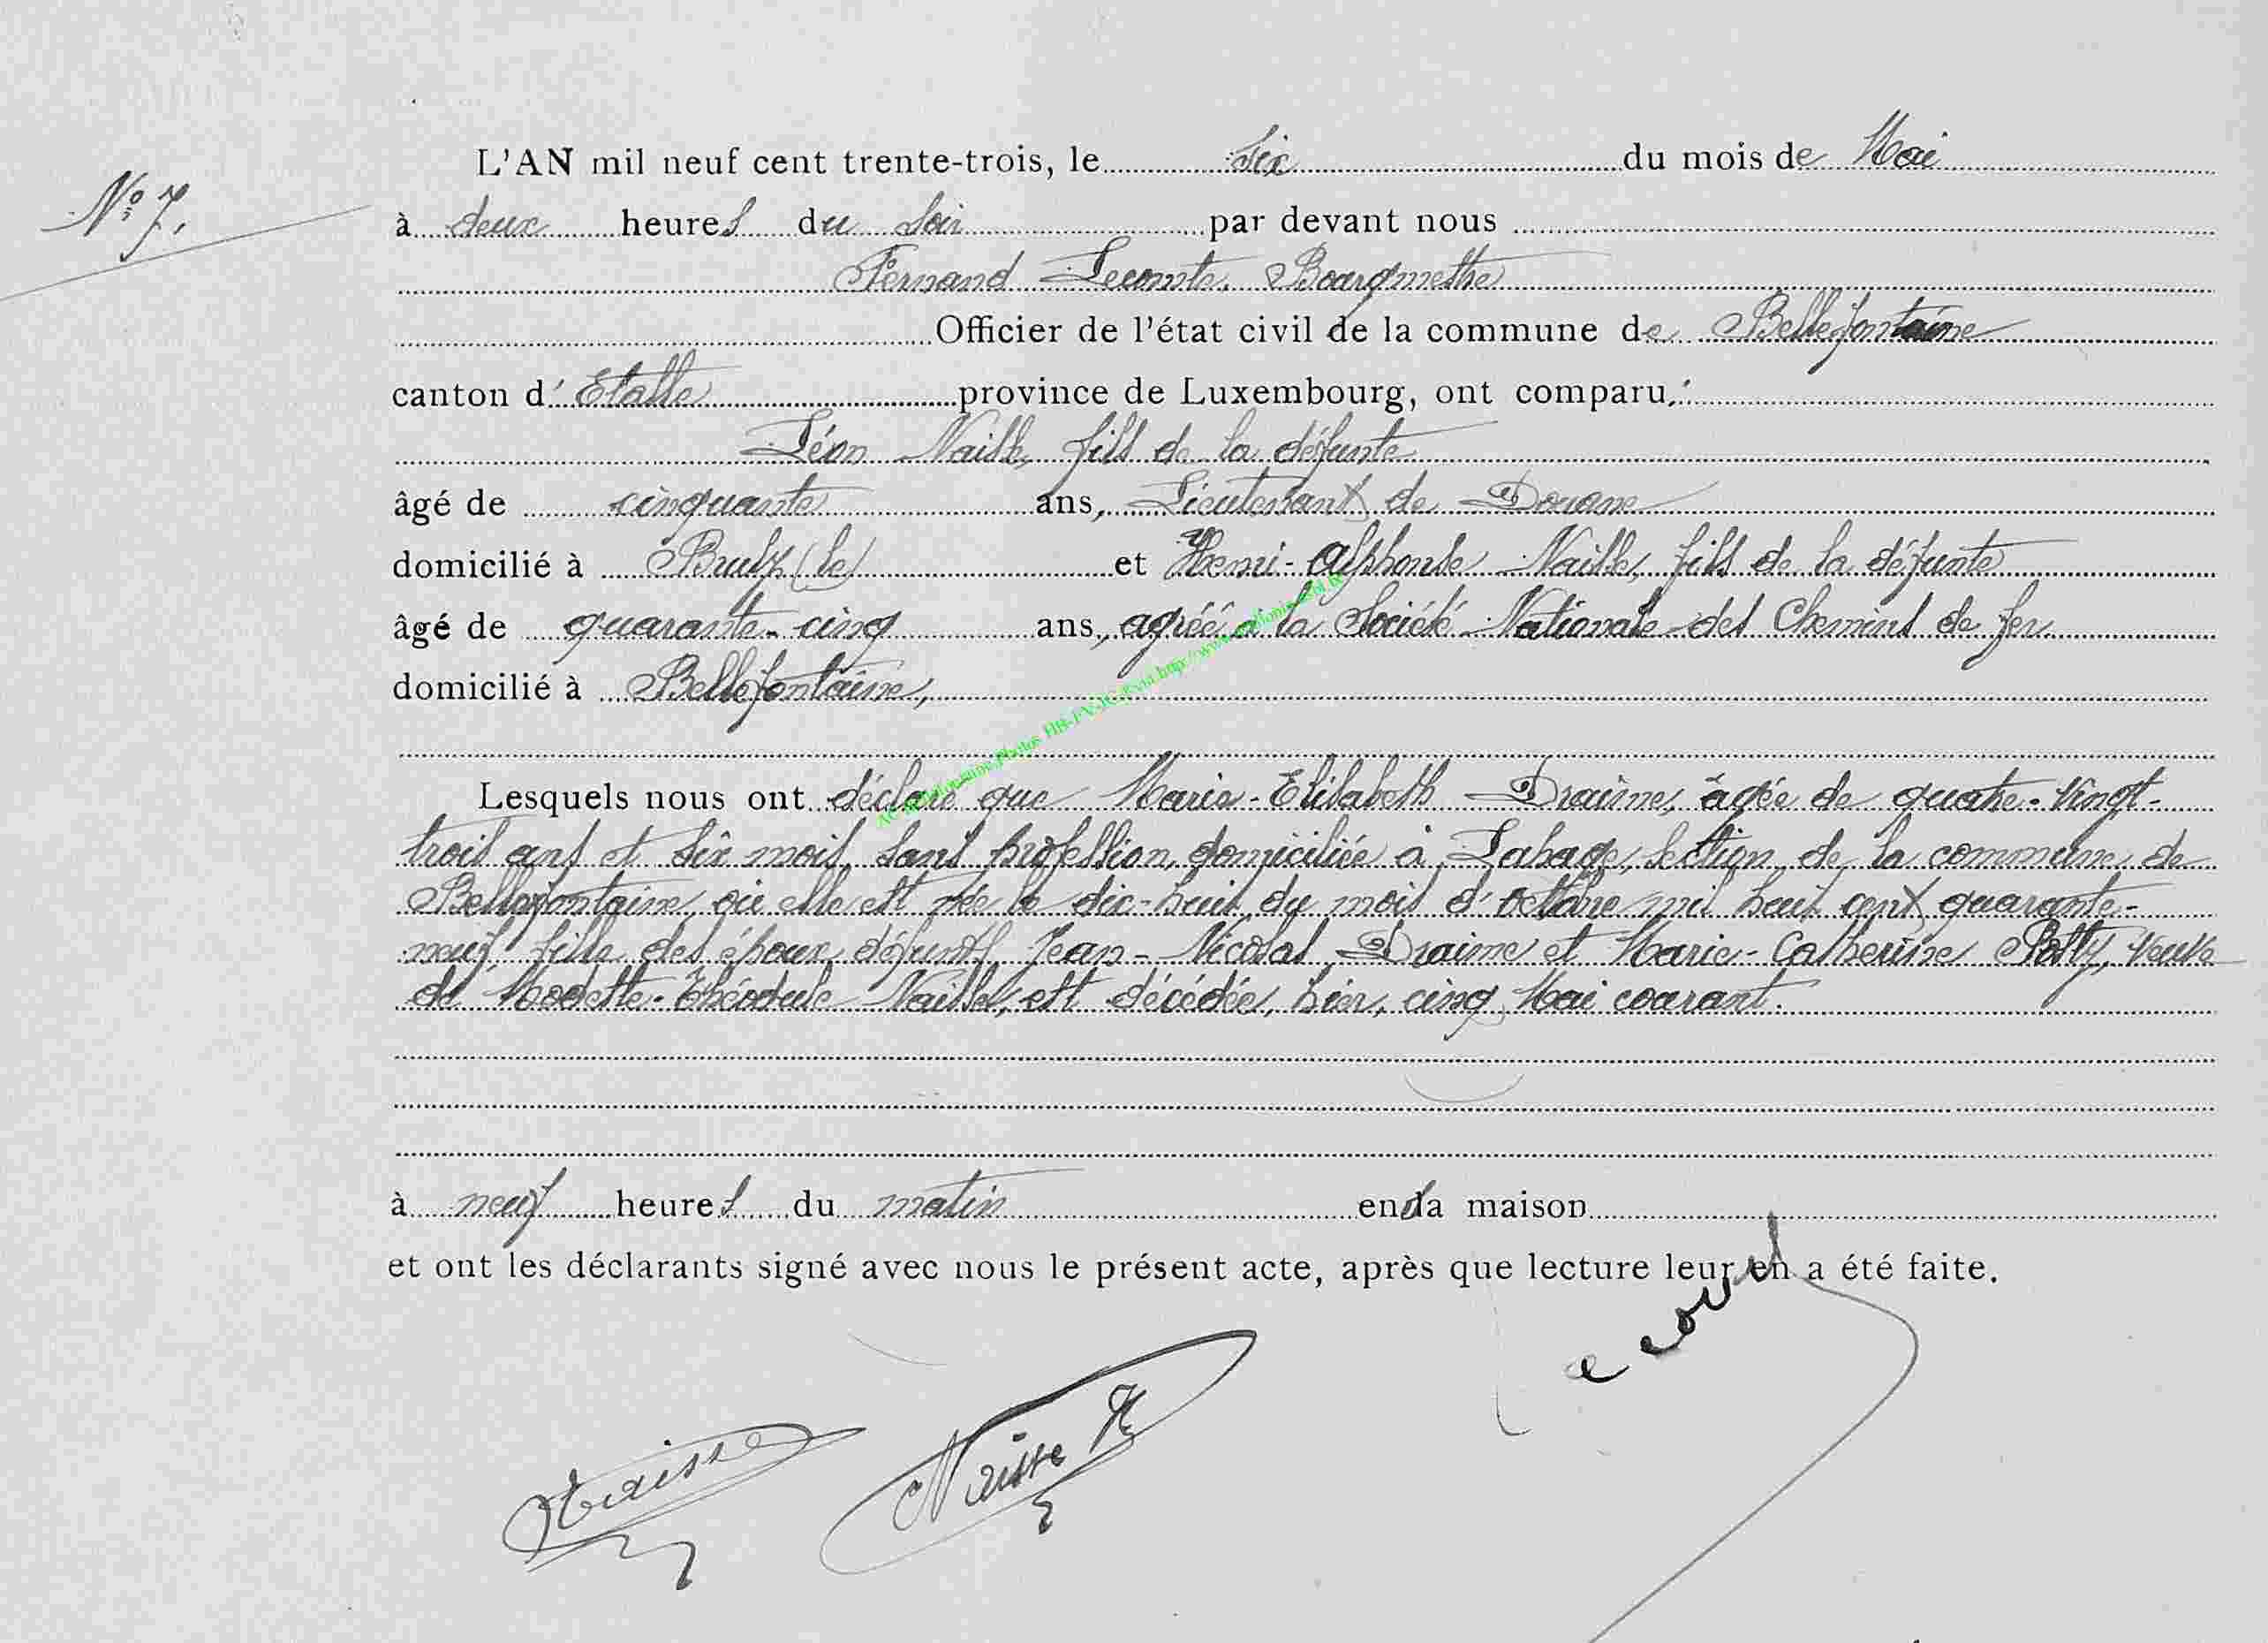 N° 7.
L'AN mil neuf cent trente-trois, le six du mois de Mai
à deux heures du soir par devant nous
Fernand Lecomte, Bourgmestre
Officier de l'état civil de la commune de Bellefontaine
canton d'Etalle province de Luxembourg, ont comparu :
Léon Naisse, fils de la défunte
âgé de cinquante ans, Lieutenant de Douane
domicilié à Bruly (le) et Henri-Alphonse Naisse, fils de la défunte
âgé de quarante-cinq ans, agréé à la Société Nationale des Chemins de fer
domicilié à Bellefontaine,
Lesquels nous ont déclaré que Marie-Elisabeth Draime, âgée de quatre-vingt-
trois ans et six mois, sans profession, domiciliée à Lahage, section de la commune de
Bellefontaine, où elle est née le dix-huit du mois d'octobre mil huit cent quarante-
neuf, fille des époux défunts Jean-Nicolas Draime et Marie-Catherine Potty, veuve
de Modeste-Théodule Naisse, est décédée, hier, cinq Mai courant.
à neuf heures du matin en sa maison
et ont les déclarants signé avec nous le présent acte, après que lecture leur en a été faite.
Naisse Naisse H